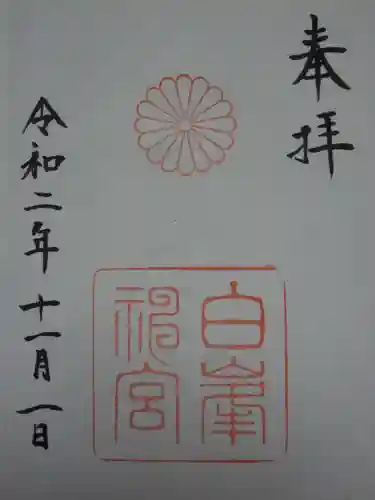 奉拝
白峯
神宮
令和二年十一月一日